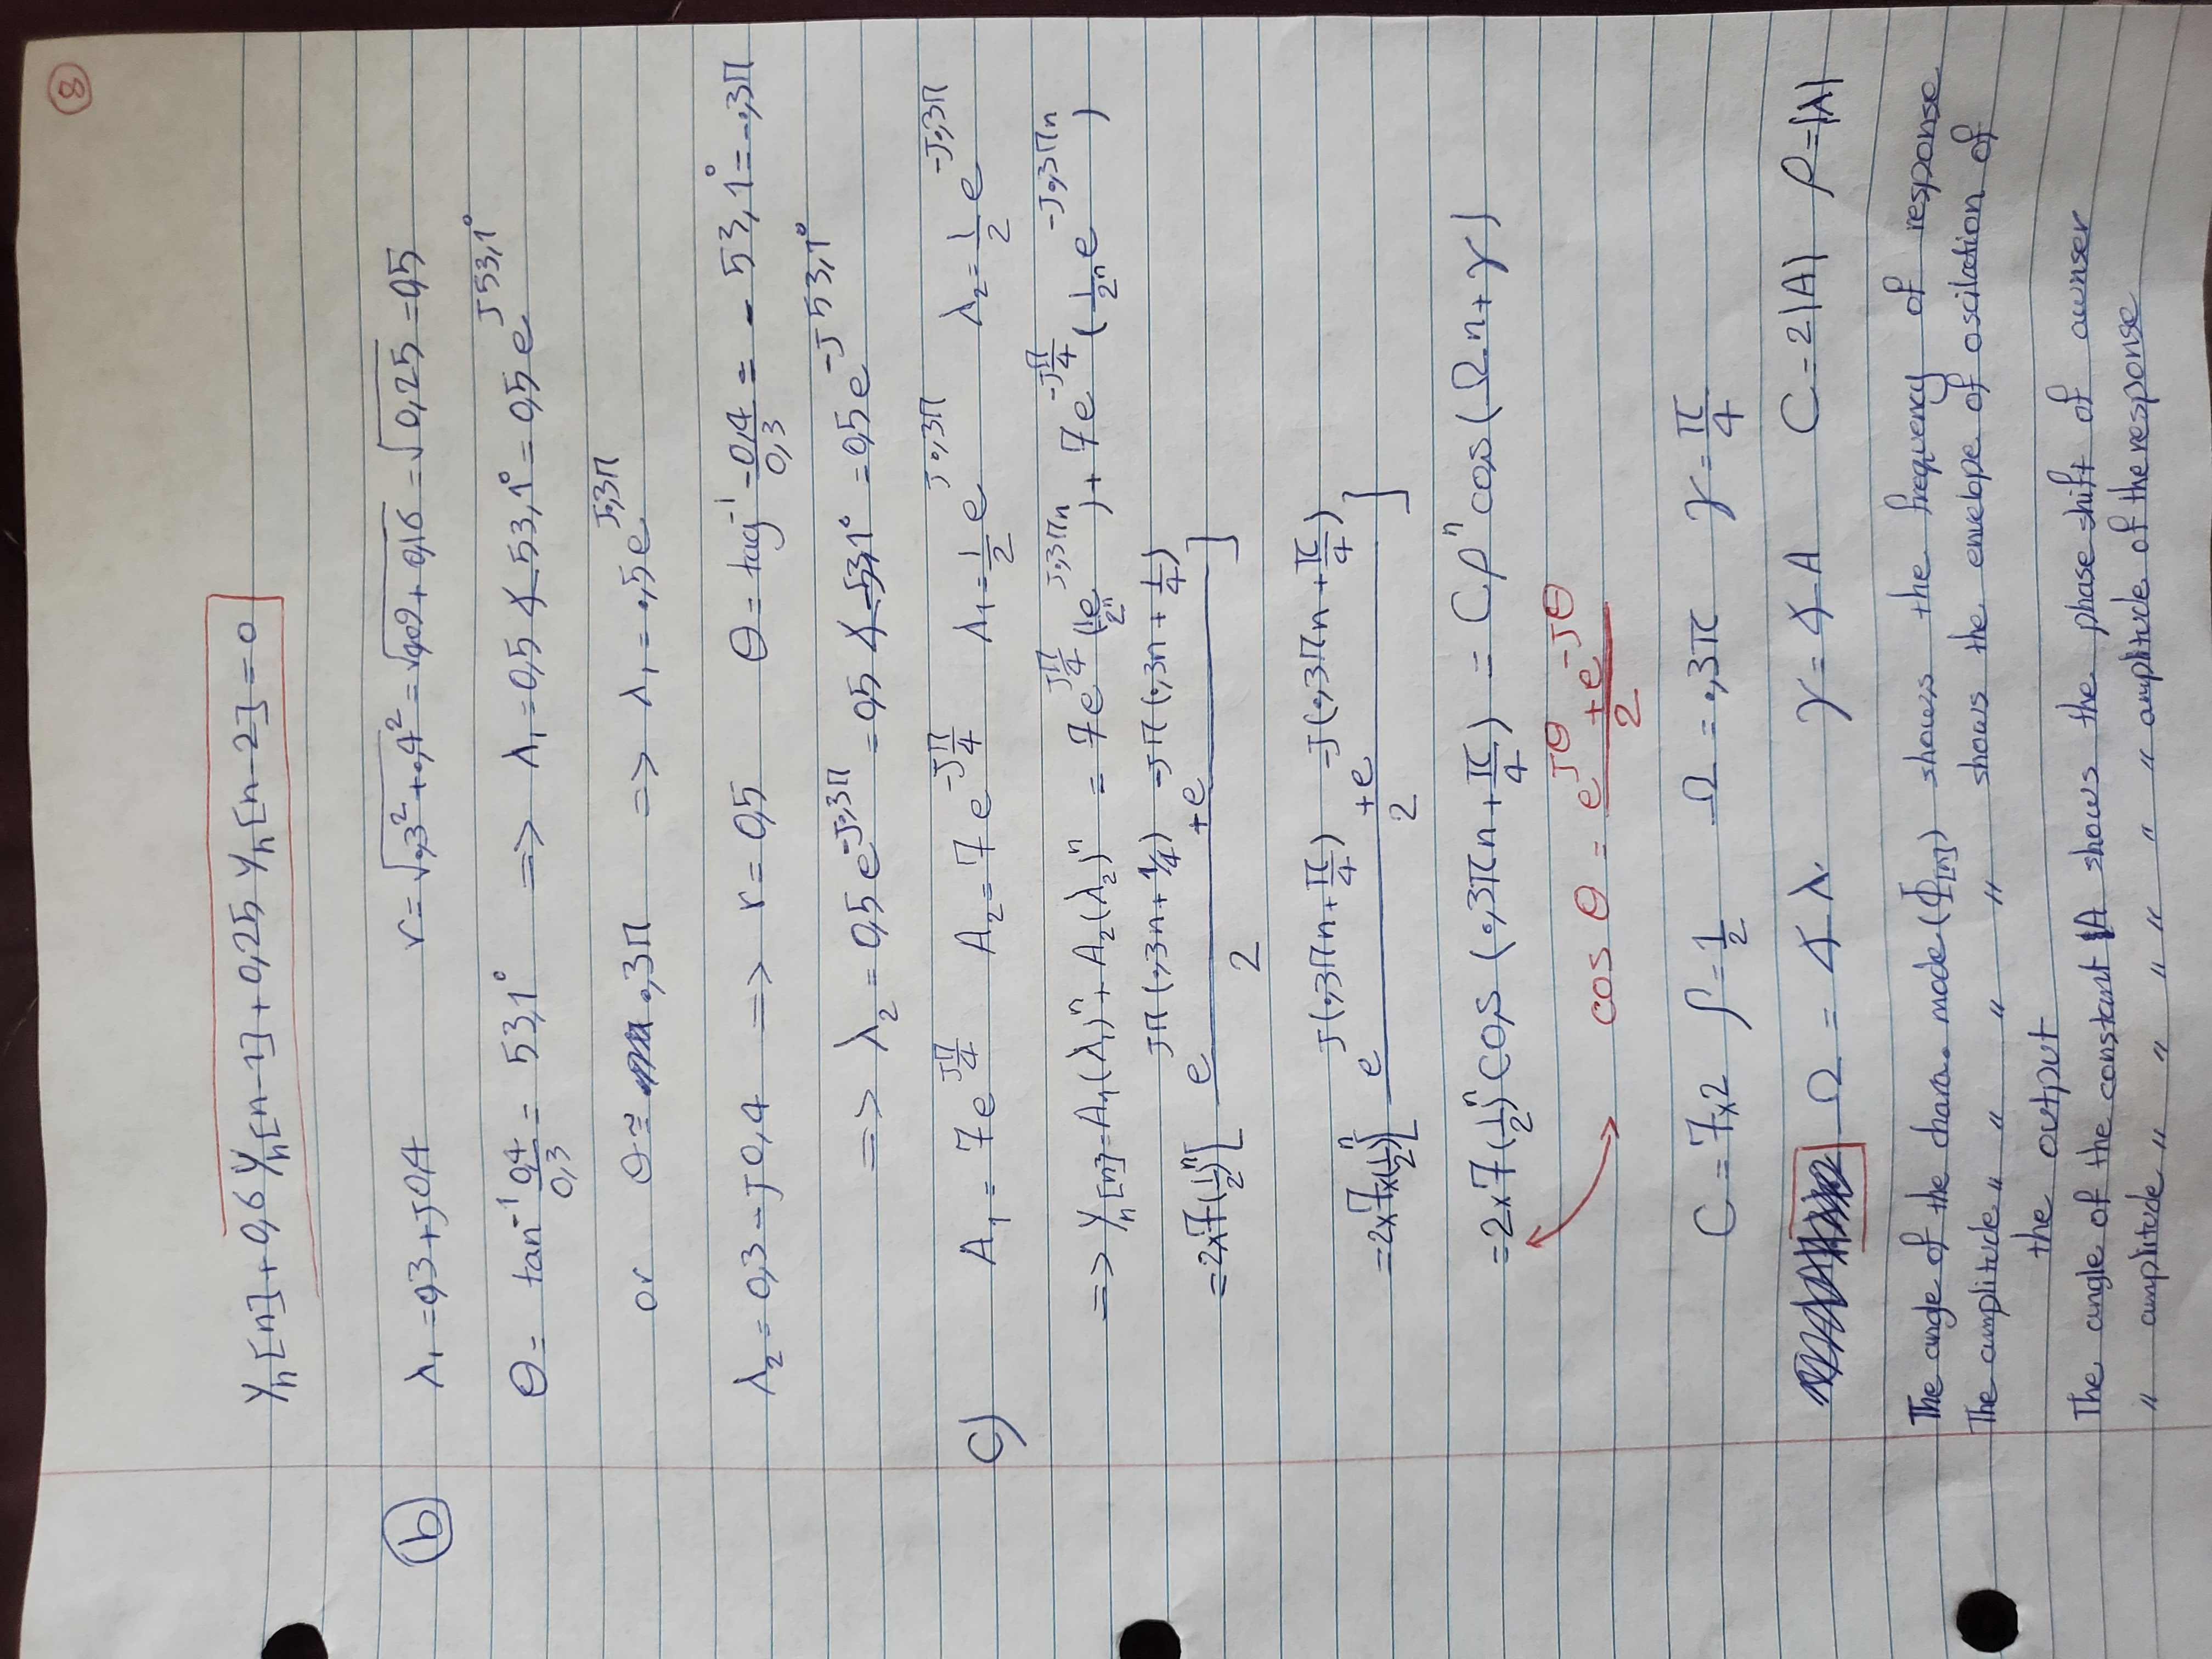 8
yₕ[n] + 0,6 yₕ[n-1] + 0,25 yₕ[n-2] = 0
b λ₁ = 0,3 + J0,4 r = √0,3² + 0,4² = √0,09 + 0,16 = √0,25 = 0,5
θ = tan⁻¹ 0,4/0,3 = 53,1° => λ₁ = 0,5 ∠ 53,1° = 0,5 e^J53,1°
or θ ≅ 0,3π => λ₁ = 0,5 e^J0,3π
λ₂ = 0,3 - J0,4 => r = 0,5 θ = tag⁻¹ -0,4/0,3 = - 53,1° = -0,3π
=> λ₂ = 0,5 e^-J0,3π = 0,5 ∠ -53,1° = 0,5 e^-J53,1°
C) A₁ = 7 e^Jπ/4 A₂ = 7 e^-Jπ/4 λ₁ = 1/2 e^J0,3π λ₂ = 1/2 e^-J0,3π
=> yₕ[n] = A₁(λ₁)ⁿ + A₂(λ₂)ⁿ = 7 e^Jπ/4 (1/2ⁿ e^J0,3πn) + 7 e^-Jπ/4 (1/2ⁿ e^-J0,3πn)
= 2×7(1/2)ⁿ [ e^Jπ(0,3n + 1/4) + e^-Jπ(0,3n + 1/4) / 2 ]
= 2×7×(1/2)ⁿ [ e^J(0,3πn + π/4) + e^-J(0,3πn + π/4) / 2 ]
= 2×7(1/2)ⁿ cos (0,3πn + π/4) = Cρⁿ cos(Ωn + γ)
cos θ = e^Jθ + e^-Jθ / 2
C = 7×2 ρ = 1/2 Ω = 0,3π γ = π/4
Ω = ∠λ γ = ∠A C = 2|A| ρ = |λ|
The angle of the chara. mode (Φ[n]) shows the frequency of response
The amplitude " " " " shows the envelope of oscilation of
the output
The angle of the constant A shows the phase shift of awnser
" amplitude " " " " " " amplitude of the response